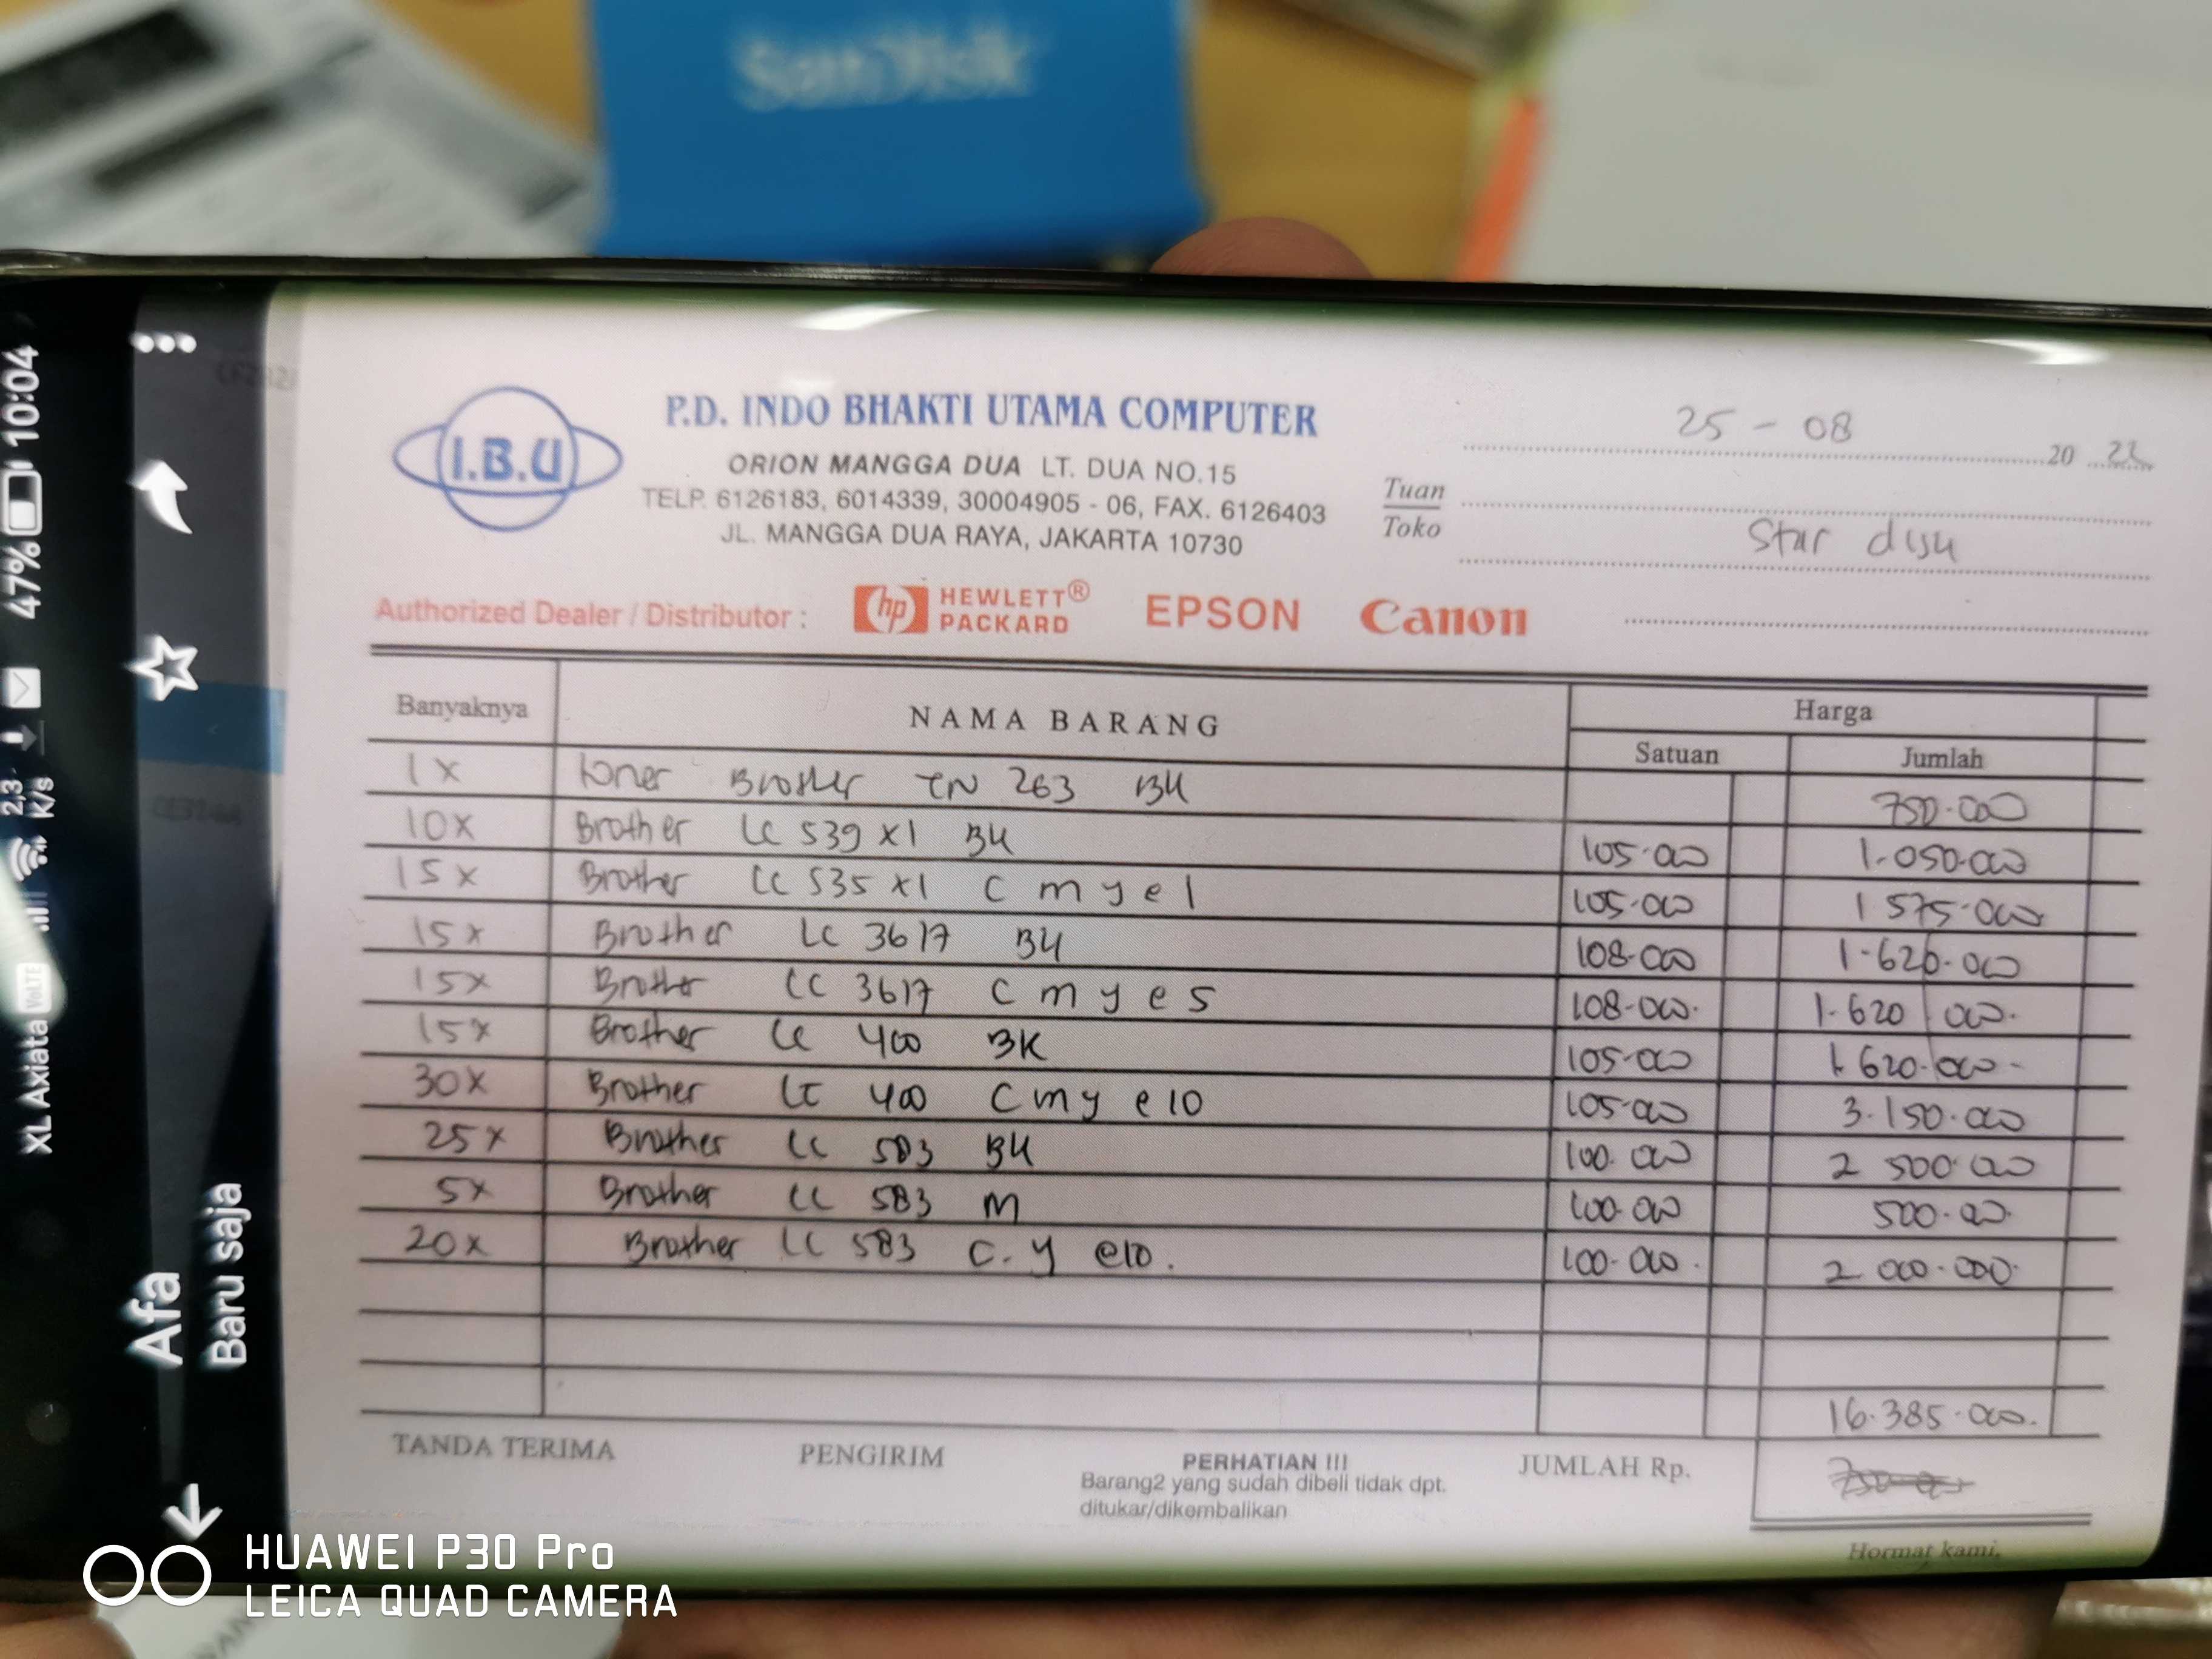 SanDisk
XL Axiata VoLTE 2,3 K/s 47% 10:04
Afa
Baru saja
I.B.U
P.D. INDO BHAKTI UTAMA COMPUTER
ORION MANGGA DUA LT. DUA NO.15
TELP. 6126183, 6014339, 30004905 - 06, FAX. 6126403
JL. MANGGA DUA RAYA, JAKARTA 10730
25 - 08 20
Tuan
Toko
Star
Authorized Dealer / Distributor : hp HEWLETT® PACKARD EPSON Canon
Banyaknya NAMA BARANG Harga
Satuan Jumlah
1x toner Brother TN 263 BK 750.000
10x Brother LC 539 x1 BK 105.000 1.050.000
15x Brother LC 535 x1 C m y e 1 105.000 1 575.000
15x Brother LC 3617 BK 108.000 1.620.000
15x Brother LC 3617 C m y e 5 108.000. 1.620.000.
15x Brother LC 400 BK 105.000 1.620.000-
30x Brother LC 400 C m y e 10 105.000 3.150.000
25x Brother LC 583 BK 100.000 2 500.000
5x Brother LC 583 M 100.000 500.00.
20x Brother LC 583 C.y @10. 100.000. 2 000.000.
16.385.000.
TANDA TERIMA PENGIRIM PERHATIAN !!! JUMLAH Rp.
Barang2 yang sudah dibeli tidak dpt.
ditukar/dikembalikan
Hormat kami,
HUAWEI P30 Pro
LEICA QUAD CAMERA